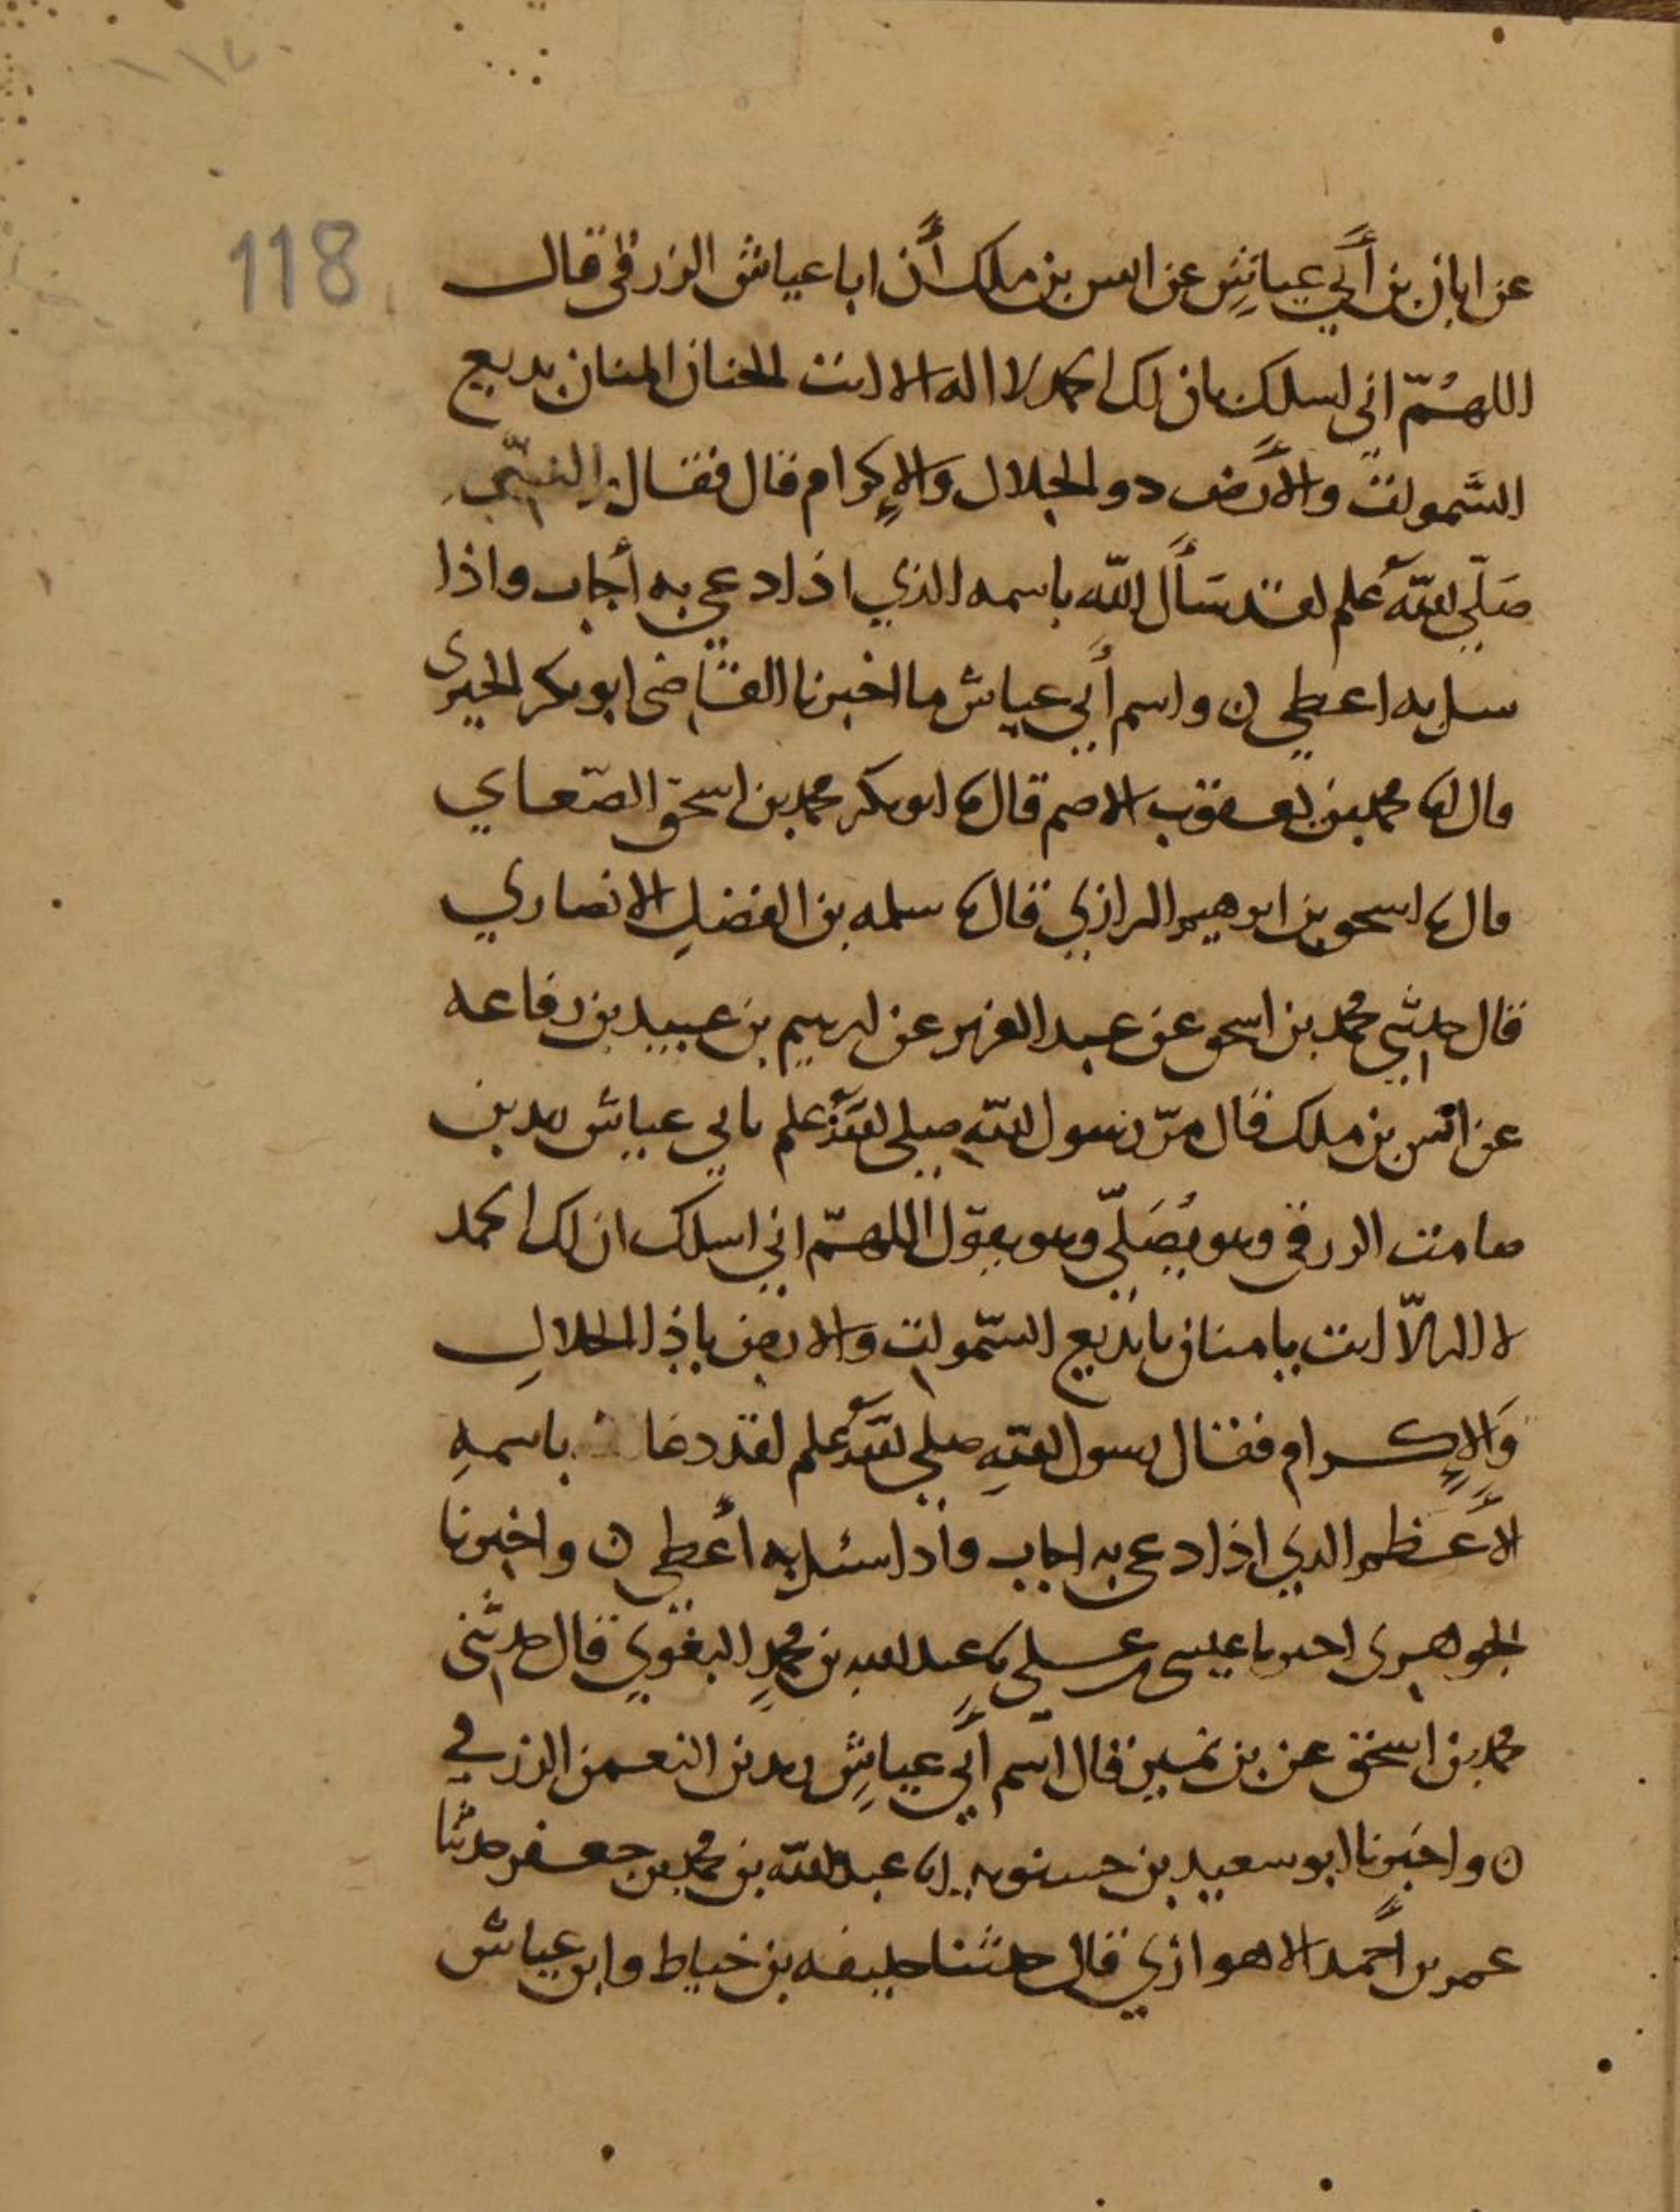 118
عن ابان بن أبي عياش عن انس بن ملك أن ابا عياش الزرقي قال
اللهم اني اسلك بان لك الحمد لا اله الا انت الحنان المنان بديع
السموات والأرض ذو الجلال والإكرام قال فقال النبي
صلى الله علم لقد سأل الله باسمه الذي اذا دعي به أجاب واذا
سل به اعطى ن واسم أبي عياش ما اخبرنا القاضي ابو بكر الحيري
قال نا محمد بن يعقوب الاصم قال نا ابو بكر محمد بن اسحق الصغاني
قال نا اسحق بن ابرهيم الرازي قال نا سلمه بن الفضل الانصاري
قال حدثني محمد بن اسحق عن عبد العزيز عن ابرهيم بن عبيد بن رفاعه
عن انس بن ملك قال مرّ رسول الله صلى الله علم بابي عياش زيد بن
صامت الزرقي وهو يُصَلّي وهو يقول اللهمّ اني اسلك ان لك الحمد
لا اله الّا انت يا منان يا بديع السّموات والارض يا ذا الجلالِ
وَالإكرام فقال رسول الله صلى الله علم لقد دعا باسمهِ
الأعظم الذي اذا دعي به اجاب واذا سئل به أعطى ن واخبرنا
الجوهري اخبرنا عيسى بن علي نا عبد الله بن محمدٍ البغوي قال حدثني
محمد بن اسحق عن بن نمير قال اسم أبي عياشِ زيد بن النعمن الزرقي
ن واخبرنا ابو سعيد بن حسنويه انا عبد الله بن محمد بن جعفر حدثنا
عمر بن أحمد الاهوازي قال حدثنا خليفه بن خياط وابن عياش